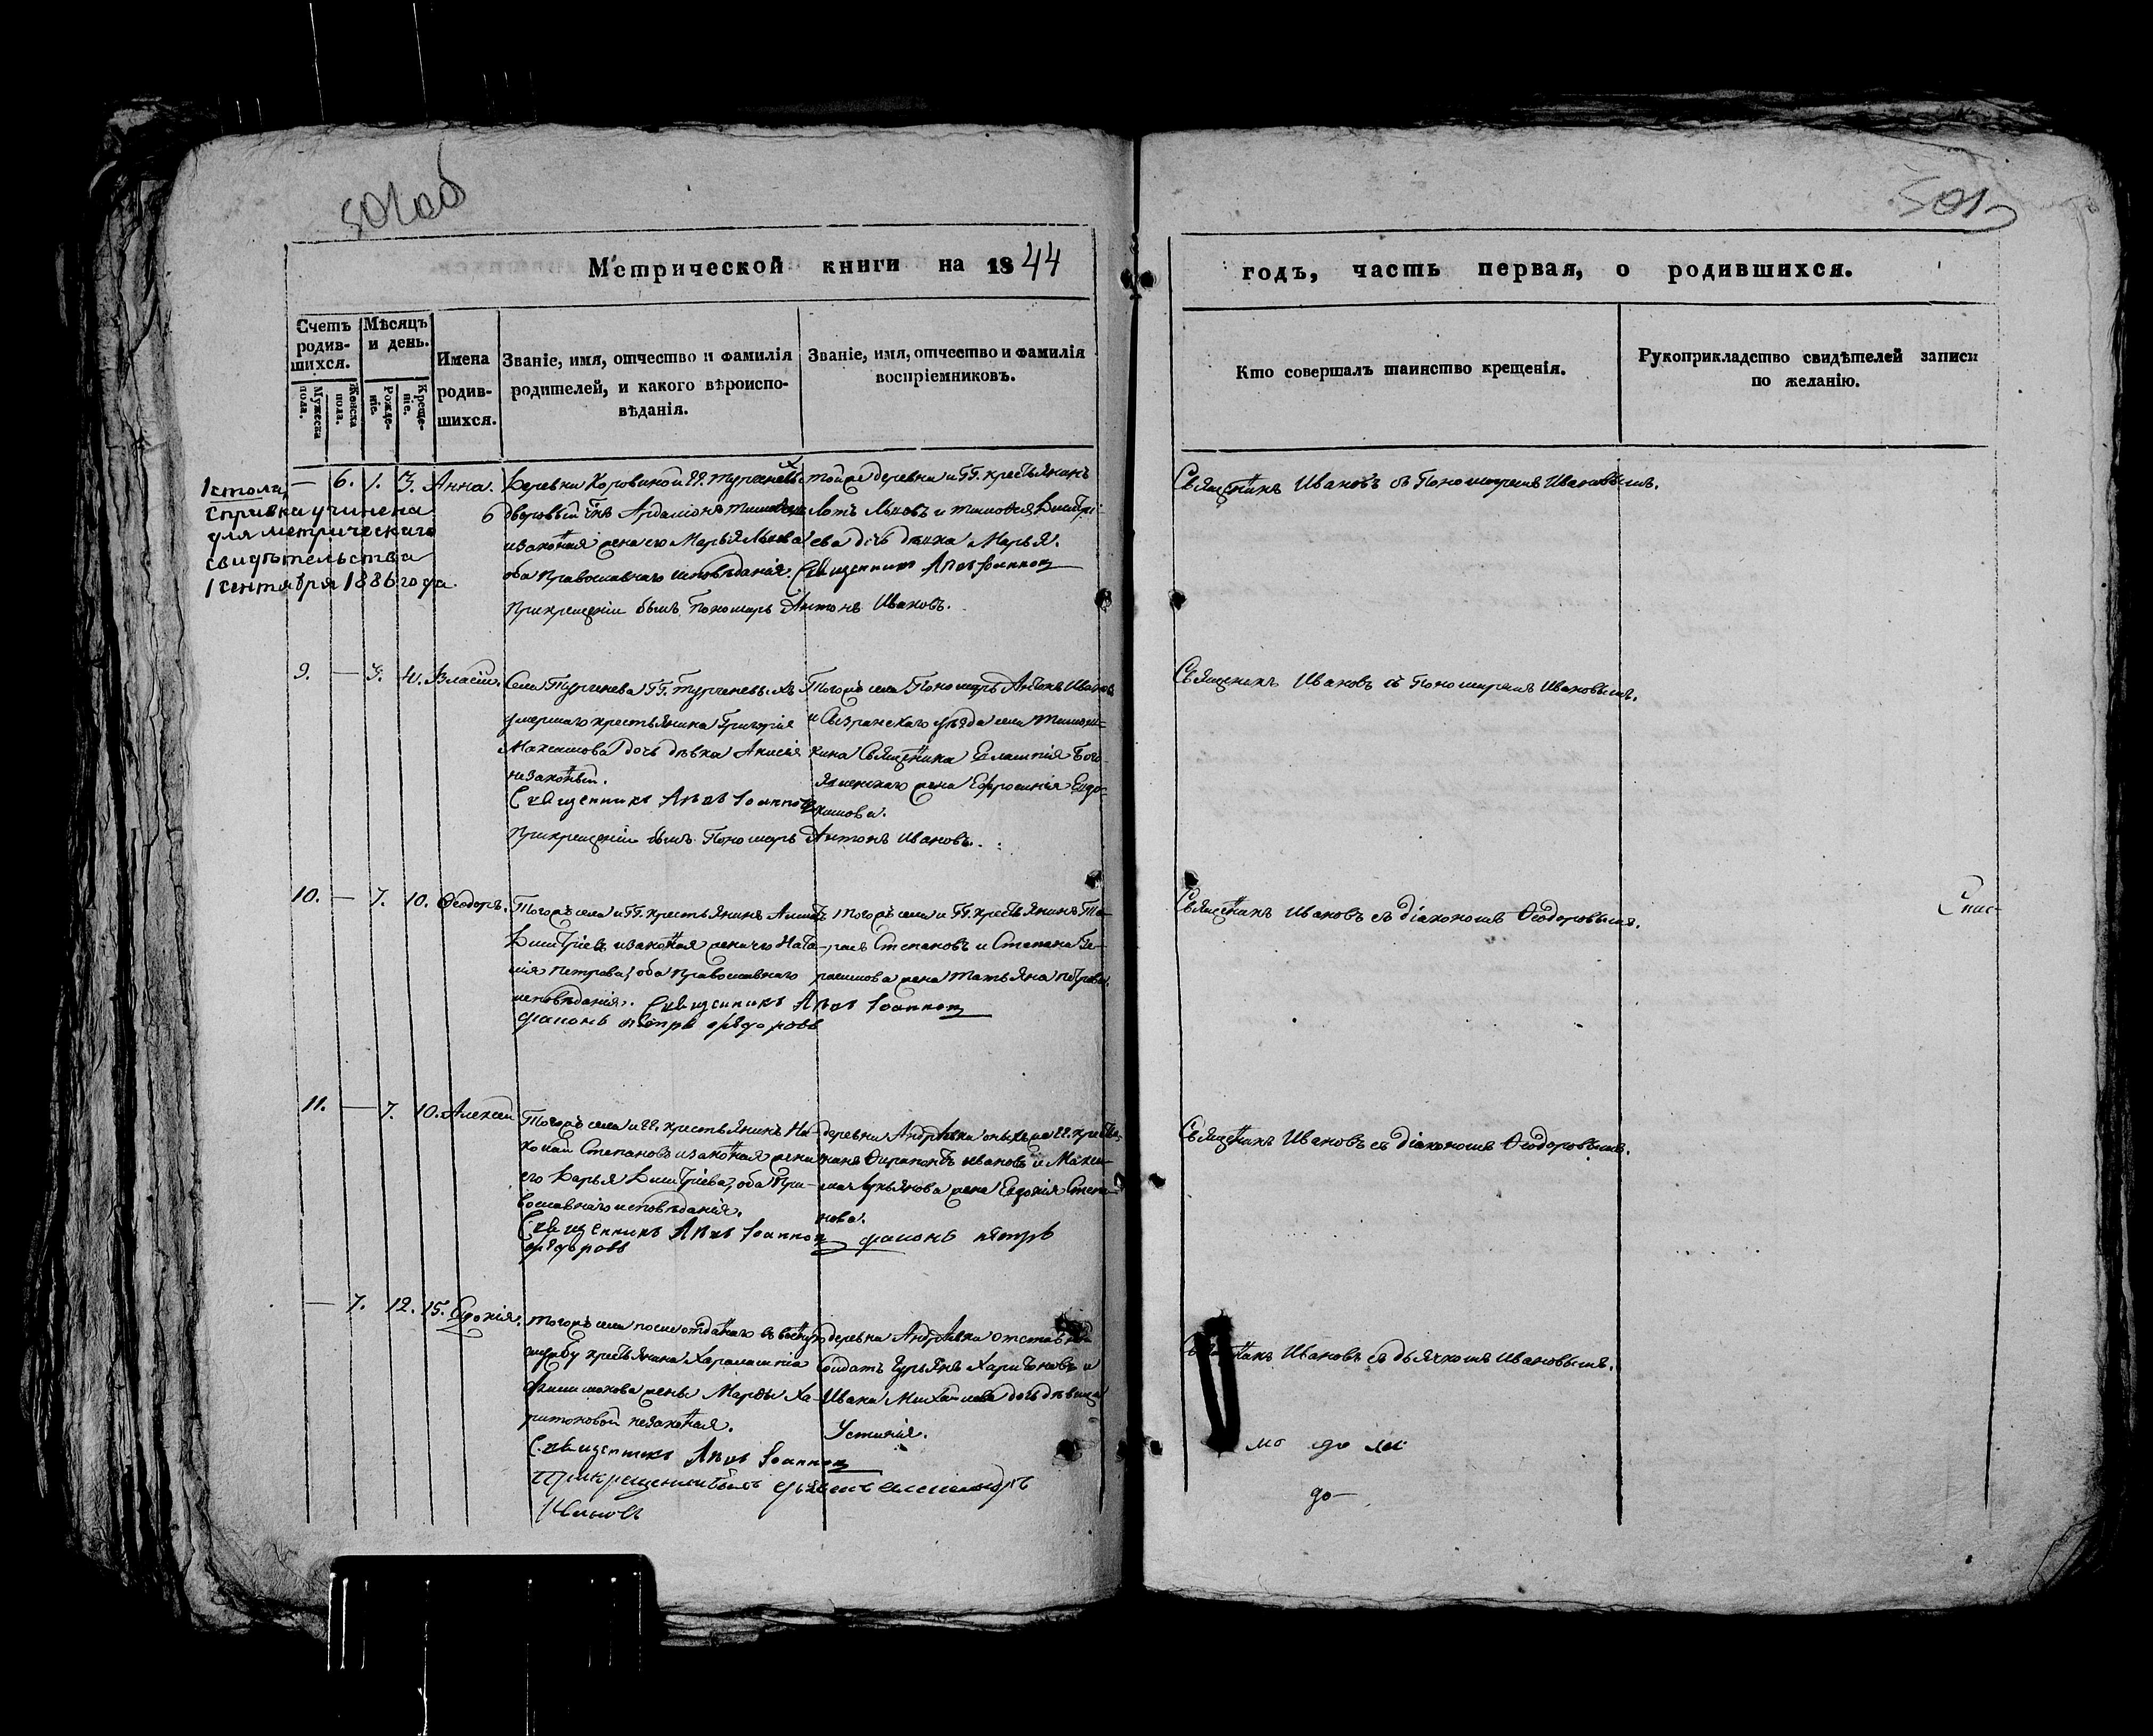 501об
501
Метрической книги на 1844
годъ, часть первая, о родившихся.
Счетъ родив-
шихся.
Мужеска пола.
Женска пола.
Мѣсяцъ и день.
Рожде-
ніе.
Креще-
ніе.
Имена
родив-
шихся.
Званіе, имя, отчество и фамилія
родителей, и какого вѣроиспо-
вѣданія.
Званіе, имя, отчество и фамилія
воспріемниковъ.
Кто совершалъ таинство крещенія.
Рукоприкладство свидѣтелей записи
по желанію.
1 стола,
справка учинена
для метрическаго
свидѣтельства
1 сентября 1886 года.
— 6. 1. 3. Анна.
Деревни Коровиной ГГ. Тургеневыхъ
дворовый Ардаліонъ
и законная жена его Марья Львова
оба православнаго исповѣданія. Священникъ Іоанновъ
при крещеніи былъ Пономарь Антонъ Ивановъ.
тойже деревни и ГГ. крестьянинъ
Левъ Львовъ и Тимофея Дмитрі-
ева дочь дѣвка Марья.
Священникъ Ивановъ съ Пономаремъ Ивановымъ.
9. — 3. 4. Власій.
Села Тургенева ГГ. Тургеневыхъ
умершаго крестьянина Григорія
Максимова дочь дѣвка Анисія
незаконный.
Священникъ Іоанновъ
при крещеніи былъ Пономарь Антонъ Ивановъ.
Тогожъ села Пономарь Антонъ Ивановъ
и Сызранскаго уѣзда села
Священника Евлампія Бого-
явленскаго жена Ефросинія Евдо-
кимова.
Священникъ Ивановъ съ Пономаремъ Ивановымъ.
10. — 7. 10. Ѳеодоръ.
Тогожъ села и ГГ. крестьянинъ
Дмитріевъ и законная жена его Ната-
лія Петрова, оба православнаго
исповѣданія. Священникъ Іоанновъ
діаконъ Петръ Ѳедоровъ
Тогожъ села и ГГ. крестьянинъ Та-
расъ Степановъ и Степана Ге-
расимова жена Татьяна Петрова.
Священникъ Ивановъ съ діакономъ Ѳеодоровымъ.
Спис-
11. — 7. 10. Алексей
Тогожъ села и ГГ. крестьянинъ Ни-
колай Степановъ и законная жена
его Дарья Дмитріева, оба пра-
вославнаго исповѣданія.
Священникъ Іоанновъ діаконъ Петръ
Ѳедоровъ
деревни Андреевки оныхже ГГ. крестья-
нинъ Ѳирапонтъ Ивановъ и Макси-
ма Лукьянова жена Евдокія Степа-
нова.
Священникъ Ивановъ съ діакономъ Ѳеодоровымъ.
— 7. 12. 15. Евдокія.
Тогожъ села после отданнаго въ военную
службу крестьянина Харалампія
жены Марѳы Ха-
ритоновой незаконная.
Священникъ Іоанновъ
При крещеніи былъ
Ивановъ
деревни Андреевки отставной
солдатъ Гурьянъ Харитоновъ и
Ивана Михайлова дочь дѣвица
Устинія.
Священникъ Ивановъ съ дьячкомъ Ивановымъ.
до